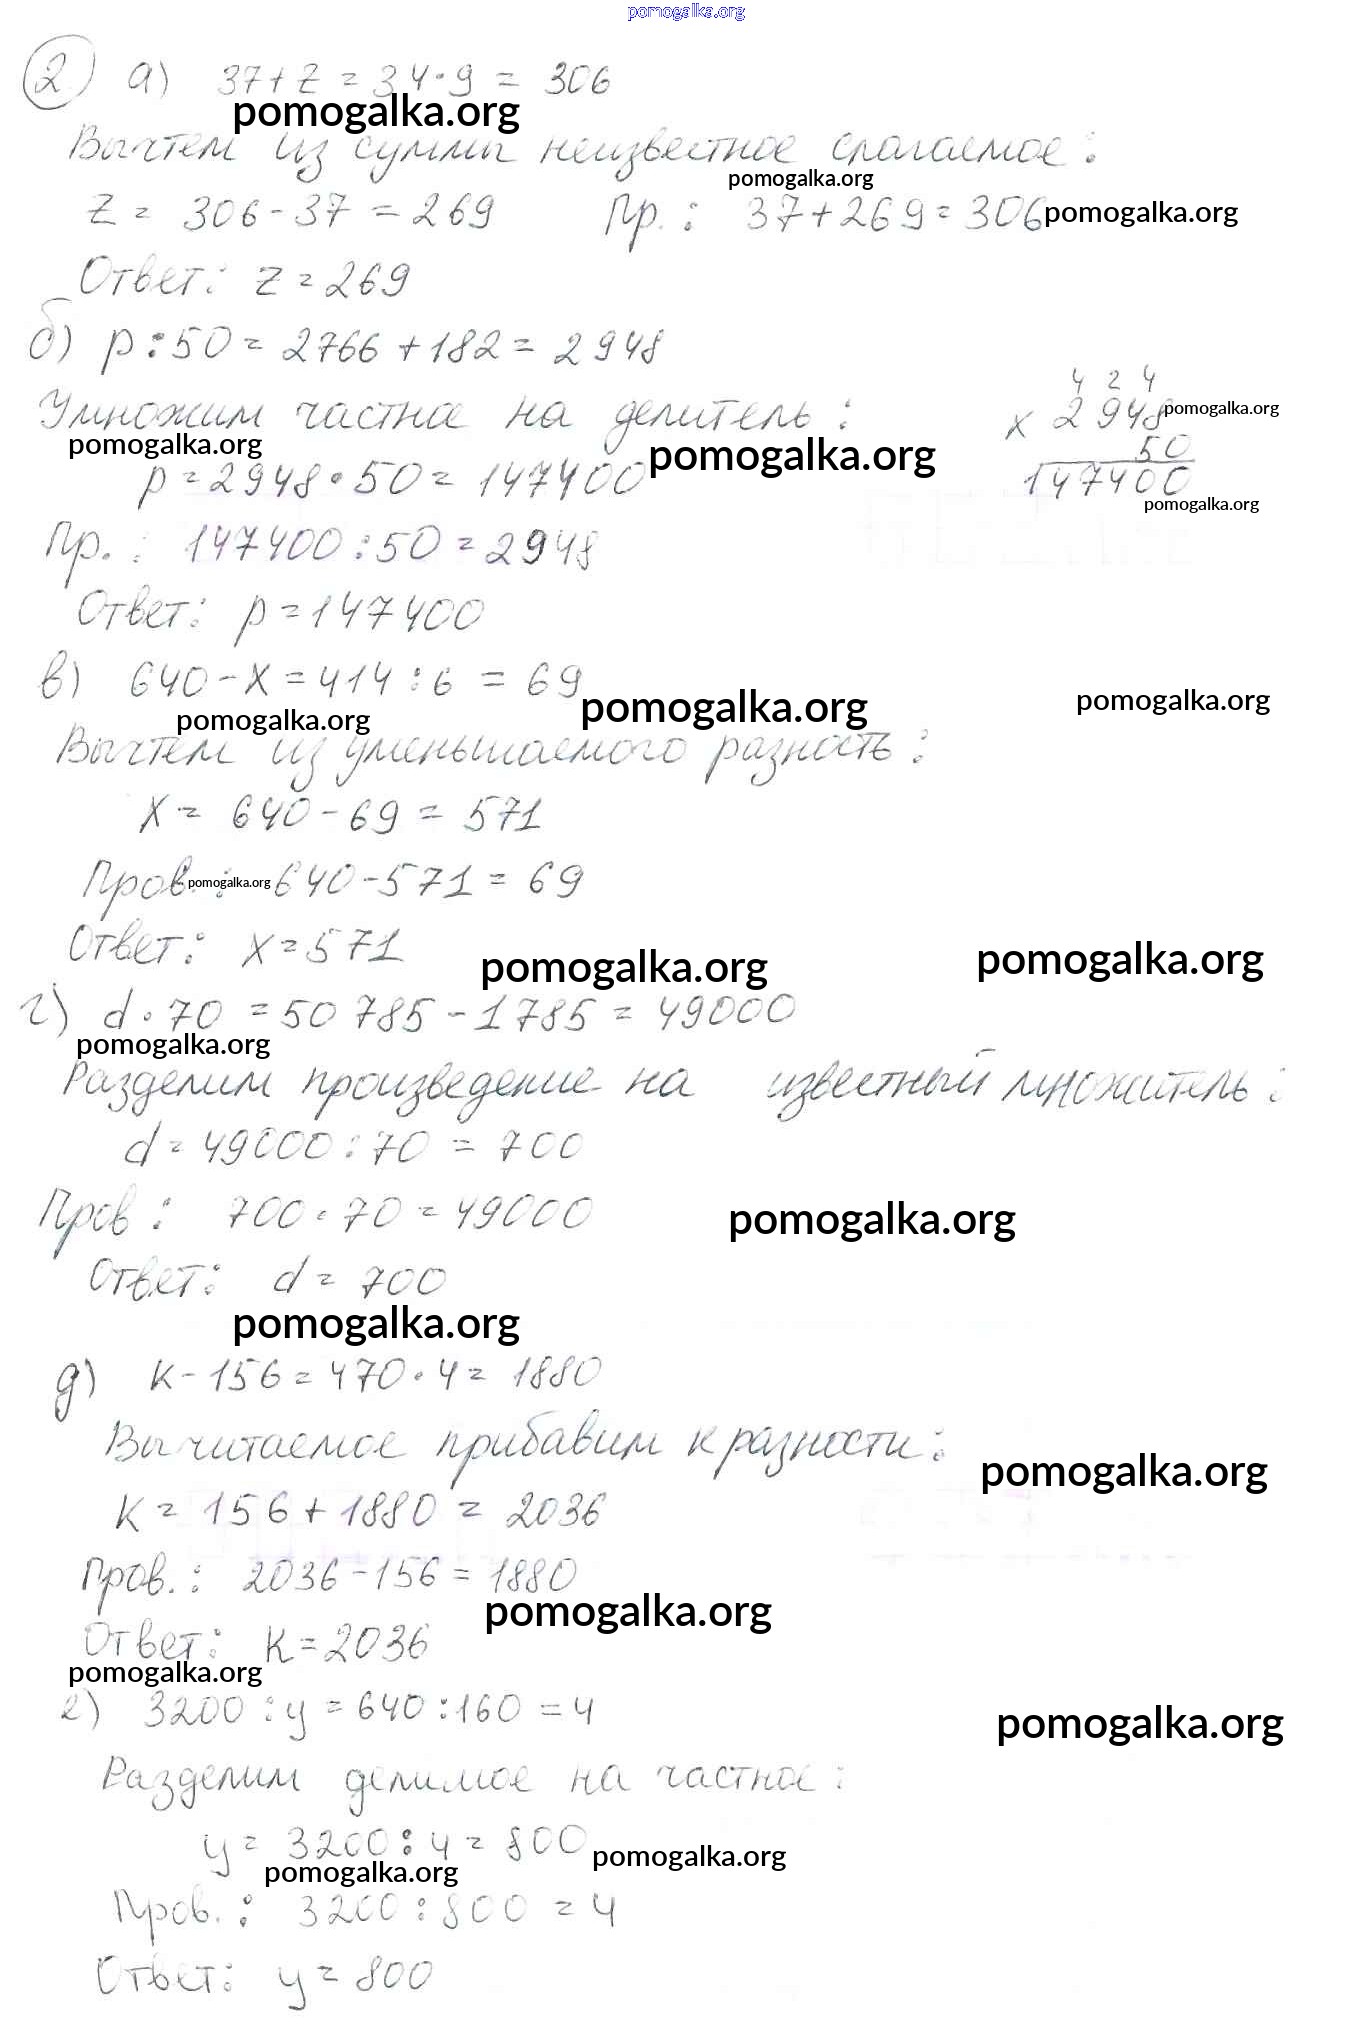 pomogalka.org
2 а) 37 + z = 34 · 9 = 306
pomogalka.org
Вычтем из суммы неизвестное слагаемое:
pomogalka.org
z = 306 - 37 = 269 Пр.: 37 + 269 = 306 pomogalka.org
Ответ: z = 269
б) p : 50 = 2766 + 182 = 2948
4 2 4
Умножим частное на делитель: × 2948 pomogalka.org
pomogalka.org pomogalka.org 50
p = 2948 · 50 = 147400 147400
pomogalka.org
Пр.: 147400 : 50 = 2948
Ответ: p = 147400
в) 640 - x = 414 : 6 = 69
pomogalka.org pomogalka.org pomogalka.org
Вычтем из уменьшаемого разность:
x = 640 - 69 = 571
Пров.: pomogalka.org 640 - 571 = 69
Ответ: x = 571
pomogalka.org pomogalka.org
г) d · 70 = 50 785 - 1785 = 49000
pomogalka.org
Разделим произведение на известный множитель:
d = 49000 : 70 = 700
Пров: 700 · 70 = 49000
pomogalka.org
Ответ: d = 700
pomogalka.org
д) k - 156 = 470 · 4 = 1880
Вычитаемое прибавим к разности:
pomogalka.org
k = 156 + 1880 = 2036
Пров.: 2036 - 156 = 1880
pomogalka.org
Ответ: k = 2036
pomogalka.org
е) 3200 : y = 640 : 160 = 4
pomogalka.org
Разделим делимое на частное:
y = 3200 : 4 = 800 pomogalka.org
pomogalka.org
Пров.: 3200 : 800 = 4
Ответ: y = 800